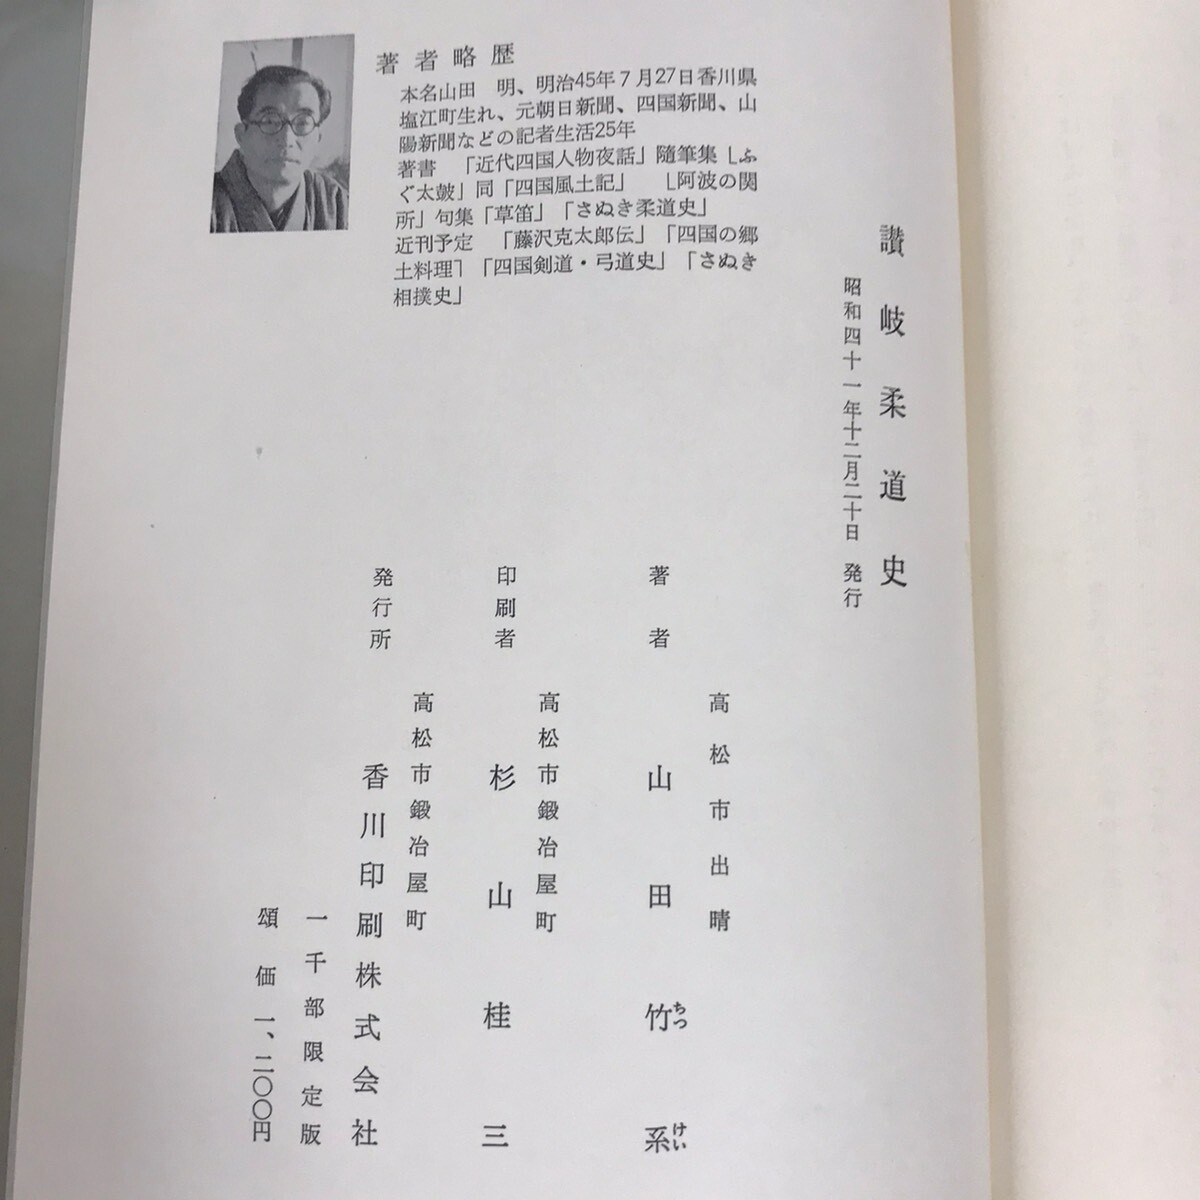 讃岐柔道史
昭和四十一年十二月二十日 発行
高松市出晴
著者 山田竹系
ちっ けい
高松市鍛冶屋町
印刷者 杉山桂三
高松市鍛冶屋町
発行所 香川印刷株式会社
一千部限定版
頌価 一、二〇〇円
著者略歴
本名山田 明、明治45年7月27日香川県
塩江町生れ、元朝日新聞、四国新聞、山
陽新聞などの記者生活25年
著書 「近代四国人物夜話」随筆集「ふ
ぐ太皷」同「四国風土記」 「阿波の関
所」句集「草笛」「さぬき柔道史」
近刊予定 「藤沢克太郎伝」「四国の郷
土料理」「四国剣道・弓道史」「さぬき
相撲史」